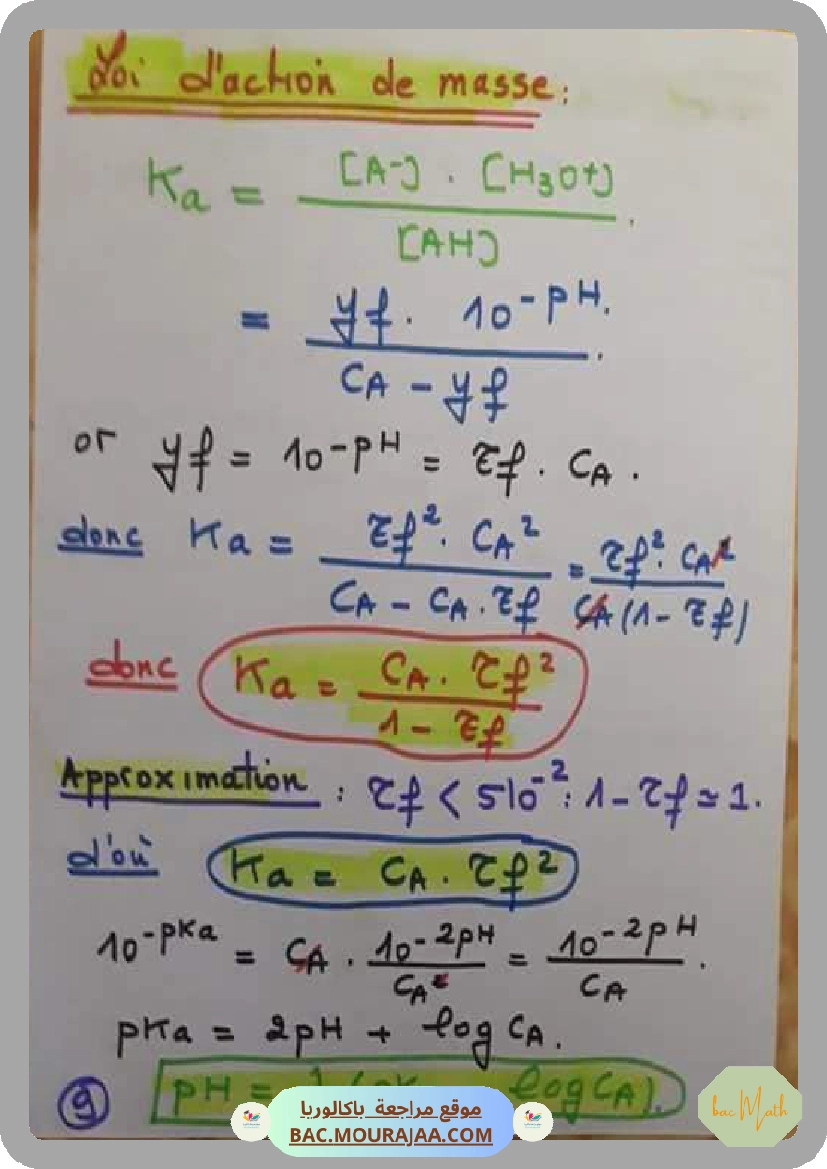 Loi d'action de masse :
Ka = [A-] . [H3O+] / [AH] .
= yf . 10^-pH . / CA - yf .
or yf = 10^-pH = τf . CA .
donc Ka = τf² . CA² / CA - CA . τf = τf² . CA² / CA (1 - τf)
donc Ka = CA . τf² / 1 - τf
Approximation : τf < 510^-2 : 1 - τf ≃ 1.
d'où Ka = CA . τf²
10^-pKa = CA . 10^-2pH / CA² = 10^-2pH / CA .
pKa = 2pH + log CA .
9 pH = log CA) .
موقع مراجعة باكالوريا
BAC.MOURAJAA.COM
bac Math